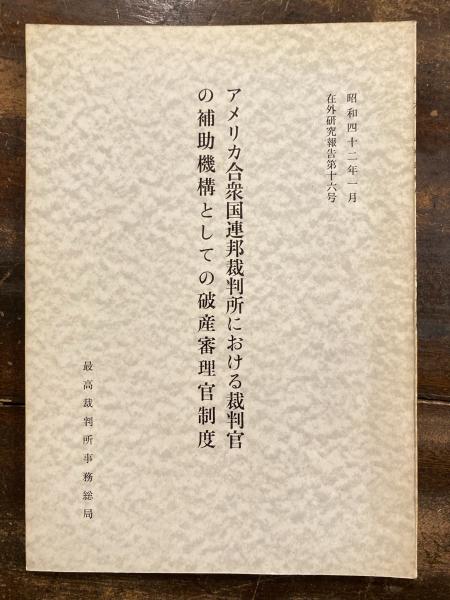 昭和四十二年一月
在外研究報告第十六号
アメリカ合衆国連邦裁判所における裁判官
の補助機構としての破産審理官制度
最高裁判所事務総局